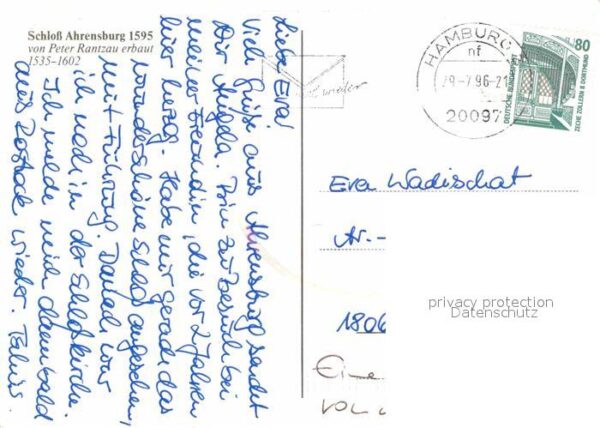 Schloß Ahrensburg 1595
von Peter Rantzau erbaut
1535-1602
Liebe Eva!
Viele Grüße aus Ahrensburg sendet
Dir Angela. Bin zu Besuch bei
meiner Freundin, die vor 2 Jahren
hier herzog. Habe mir gerade das
wunderschöne Schloß angesehen,
mit Führung. Danach war
ich noch in der Schloßkirche.
Ich melde mich dann bald
aus Rostock wieder. Tschüß.
wieder
HAMBURG
nf
29-7.96-21
20097
80
DEUTSCHE BUNDESPOST
ZECHE ZOLLERN II DORTMUND
Eva Wadischat
1806
privacy protection
Datenschutz
Eine